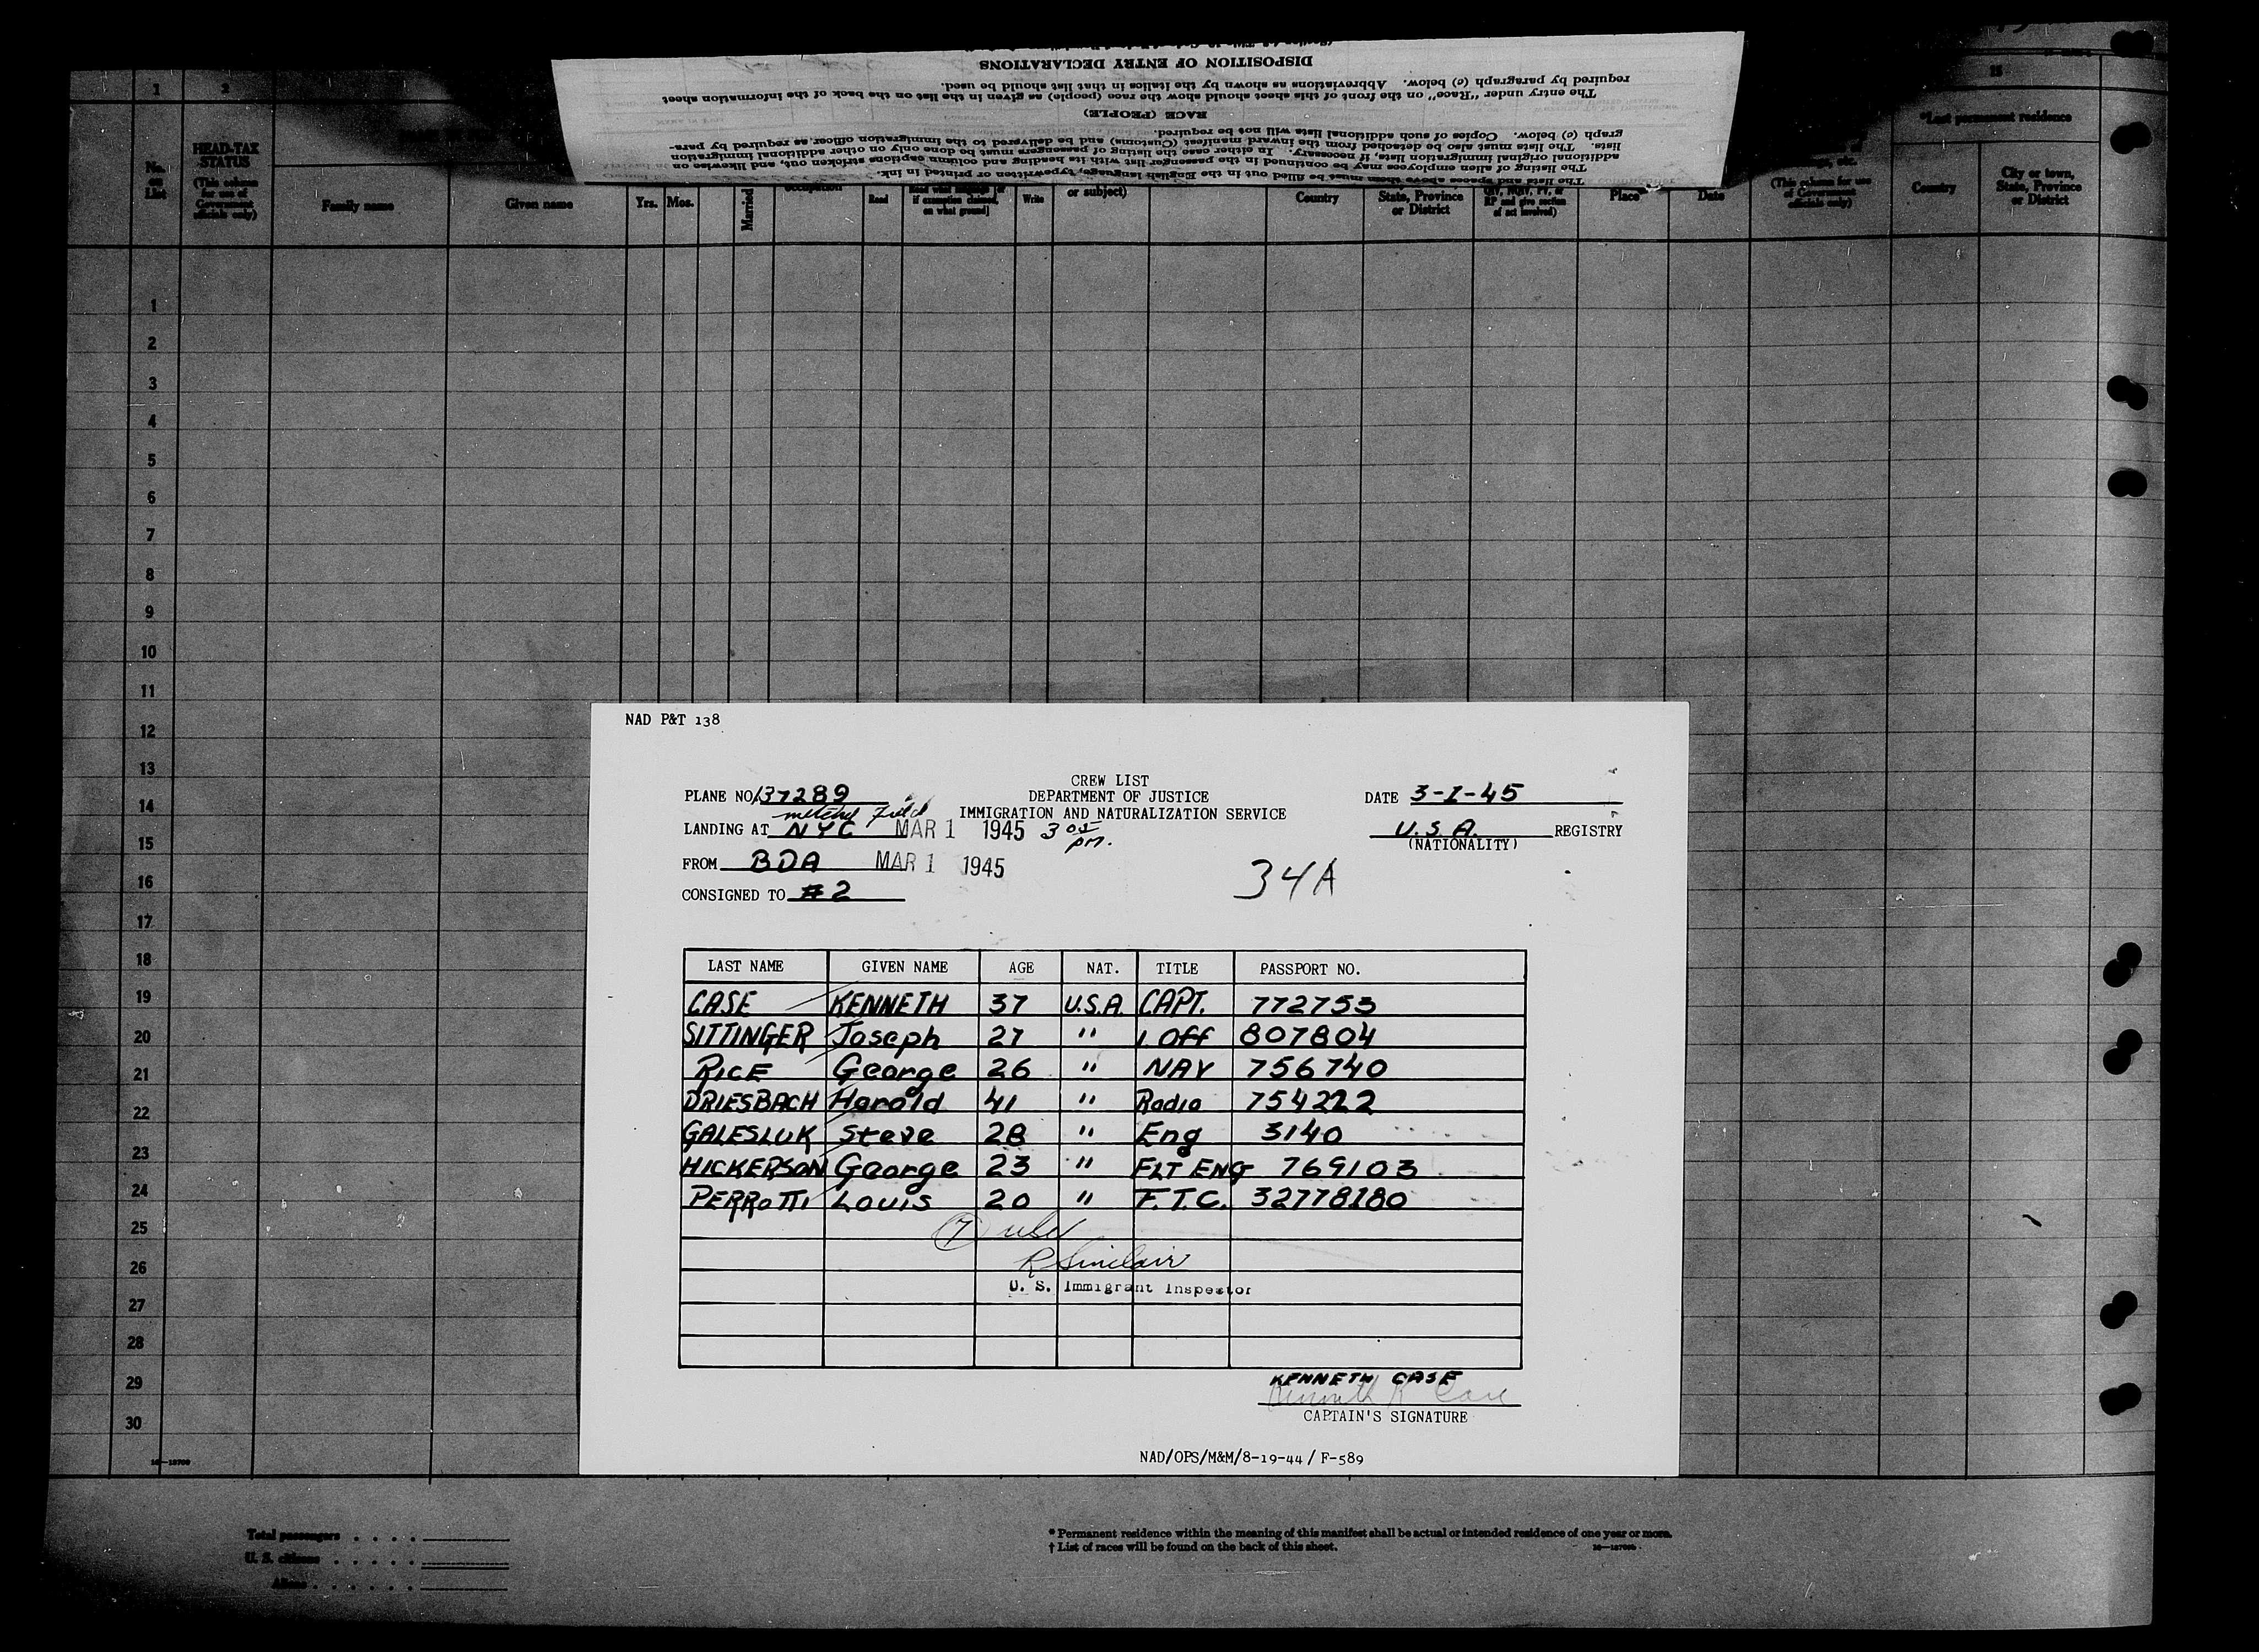 DISPOSITION OF ENTRY DECLARATIONS
required by paragraph (e) below. Abbreviations as shown by the italics in that list should be used.
The entry under "Race" on the front of this sheet should show the race (people) as given in the list on the back of the information sheet
RACE (PEOPLE)
graph (e) below. Copies of such additional lists will not be required.
lists. The lists must also be detached from the inward manifest (Customs) and be delivered to the immigration officer as required by para-
additional original immigration lists, if necessary. In either case the listing of passengers must be done only on other additional immigration
The listing of alien employees may be continued in the passenger list with its heading and column captions stricken out, and likewise on
The lists and spaces above them must be filled out in the English language, typewritten or printed in ink.
1 2 15
No. on List
HEAD-TAX STATUS
(This column for use of Government officials only)
Family name
Given name
Yrs. Mos.
Married
Read
Read what language [or if exemption claimed, on what ground]
Write
or subject)
Country
State, Province or District
QIV, NQIV, PV, or RP and give section of act involved)
Place
Date
(This column for use of Government officials only)
*Last permanent residence
Country
City or town, State, Province or District
1
2
3
4
5
6
7
8
9
10
11
12
13
14
15
16
17
18
19
20
21
22
23
24
25
26
27
28
29
30
NAD P&T 138
CREW LIST
PLANE NO. 37289 DEPARTMENT OF JUSTICE DATE 3-1-45
Mitchel Field IMMIGRATION AND NATURALIZATION SERVICE
LANDING AT NYC MAR 1 1945 3 05 pm. U.S.A. REGISTRY
(NATIONALITY)
FROM BDA MAR 1 1945
34A
CONSIGNED TO #2
LAST NAME GIVEN NAME AGE NAT. TITLE PASSPORT NO.
CASE KENNETH 37 U.S.A. CAPT. 772753
SITTINGER Joseph 27 " 1 Off 807804
RICE George 26 " NAV 756740
DRIESBACH Harold 41 " Radio 754222
GALESLUK Steve 28 " Eng 3140
HICKERSON George 23 " FLT ENG 769103
PERROTTI LOUIS 20 " F.T.C. 32778180
(7) USC
R Sinclair
U. S. Immigrant Inspector
KENNETH CASE
Kenneth R Case
CAPTAIN'S SIGNATURE
NAD/OPS/M&M/8-19-44 / F-589
Total passengers . . . .
U. S. citizens . . . . .
Aliens . . . . . .
* Permanent residence within the meaning of this manifest shall be actual or intended residence of one year or more.
† List of races will be found on the back of this sheet.